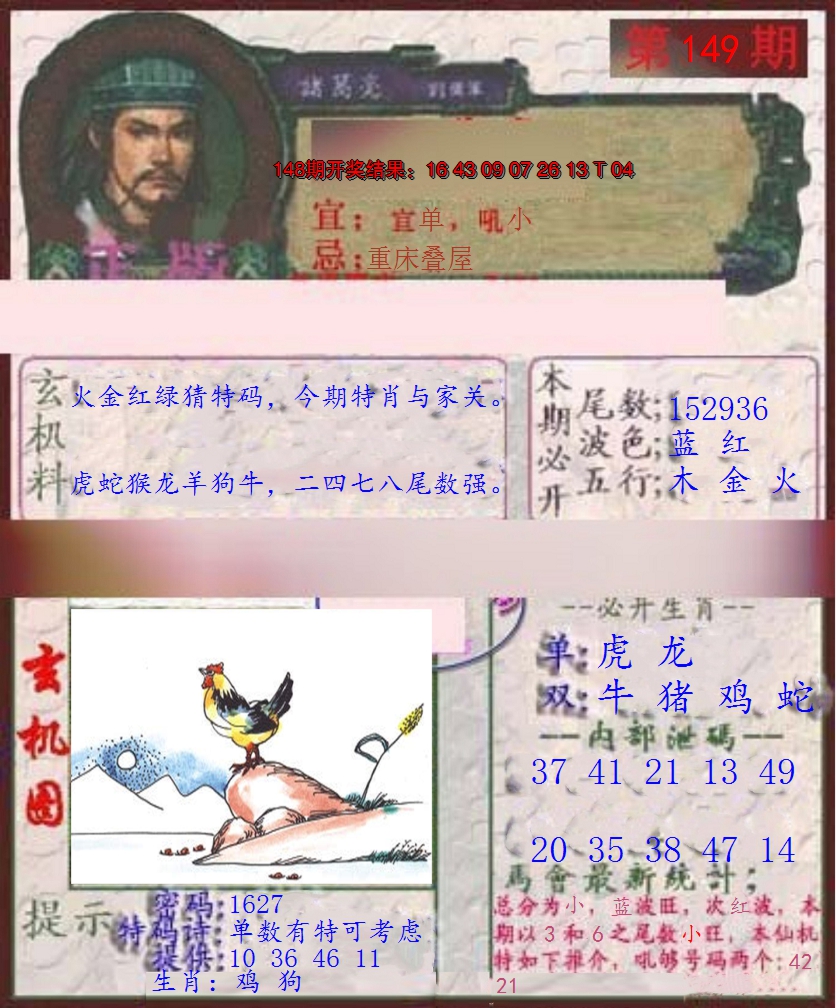 第149期
諸葛亮
148期开奖结果：16 43 09 07 26 13 T 04
宜：宜单，吼小
忌：重床叠屋
正版
玄机料
火金红绿猜特码，今期特肖与家关。
虎蛇猴龙羊狗牛，二四七八尾数强。
本期必开
尾数;152936
波色;蓝 红
五行;木 金 火
--必开生肖--
单:虎 龙
双:牛 猪 鸡 蛇
一内部泄碼一
37 41 21 13 49
20 35 38 47 14
馬會最新統計;
总分为小，蓝波旺，次红波，本
期以3和6之尾数小旺，本仙机
特如下推介，吼够号码两个:42
21
玄机图
提示
密码:1627
特码诗:单数有特可考虑
提供:10 36 46 11
生肖：鸡 狗